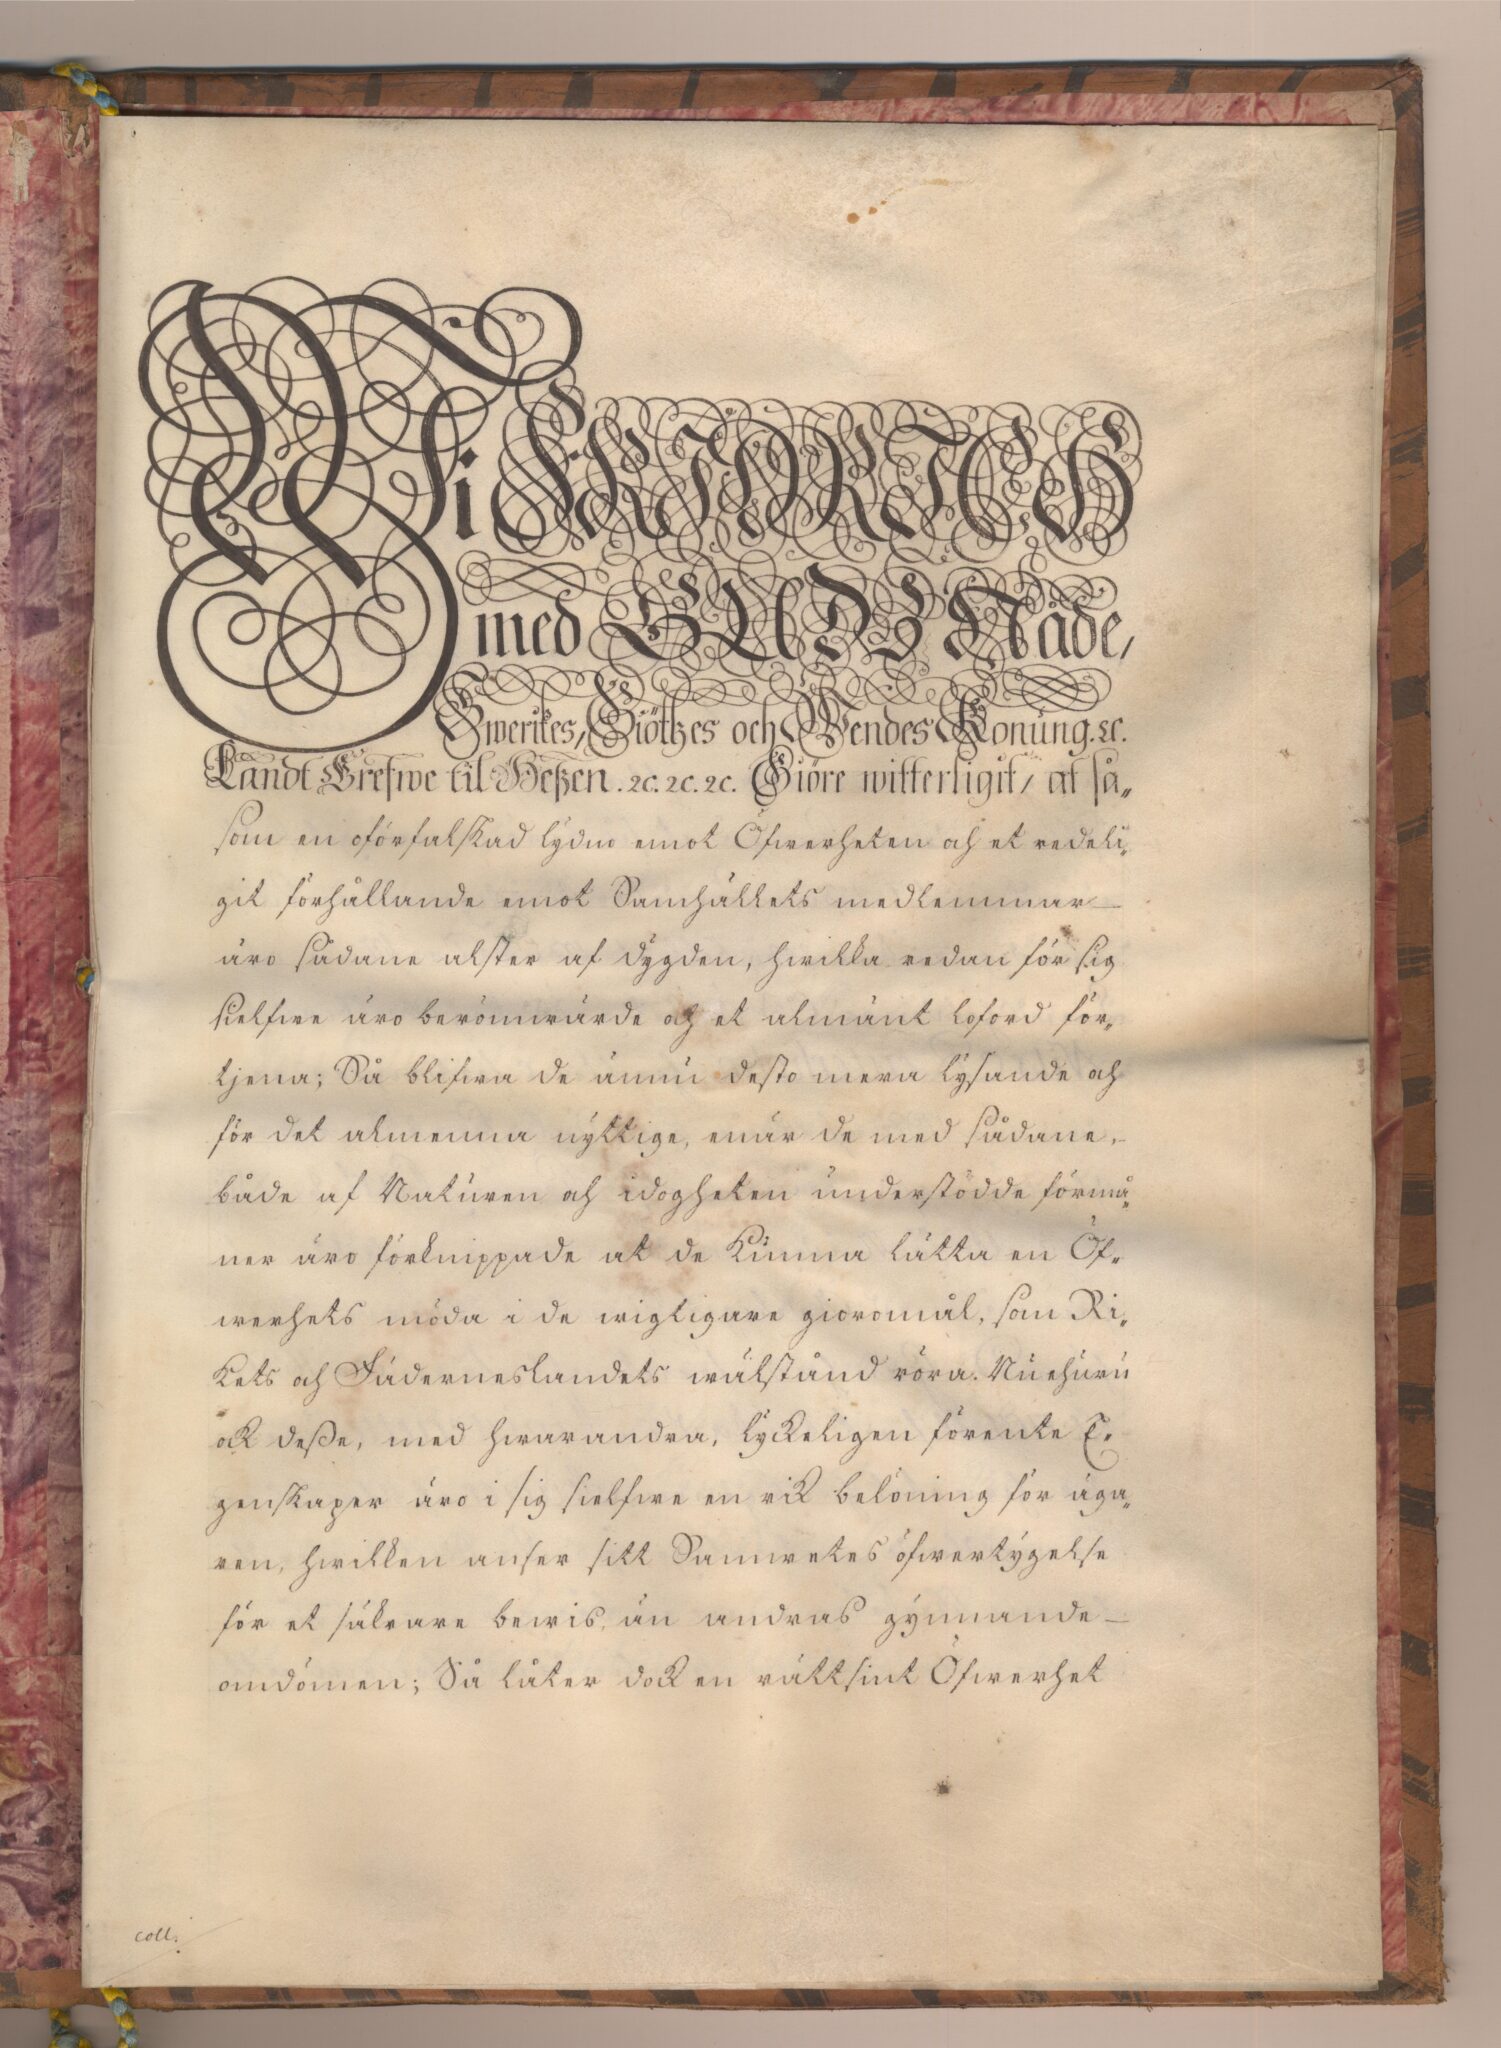 Wi FRIEDRICH
med GUDS Nåde,
Swerikes, Giöthes och Wendes Konung. ꝛc.
Landt Grefwe til Heßen. ꝛc. ꝛc. ꝛc. Giöre witterligit, at så„
som en oförfalskad lydno emot Öfwerheten och et redeli„
git förhållande emot Samhällets medlemmar
äro sådane alster af dygden, hwilka redan för sig
sielfwe äro berömwärde och et almänt loford för„
tjena; Så blifwa de ännu desto mera lysande och
för det almenna nyttige, enär de med sådane,
både af Naturen och idogheten understödde förmå„
ner äro förknippade at de kunna lätta en Öf„
werhets möda i de wigtigare giöromål, som Ri„
kets och Fäderneslandets wälstånd röra. Nu ehuru
ock deße, med hwarandra, lyckeligen förente E„
genskaper äro i sig sielfwe en rik belöning för äga„
ren, hwilken anser sitt Samwetes öfwertygelse
för et säkrare bewis, än andras gynnande
omdömen; Så låter dock en rättsint Öfwerhet
coll.